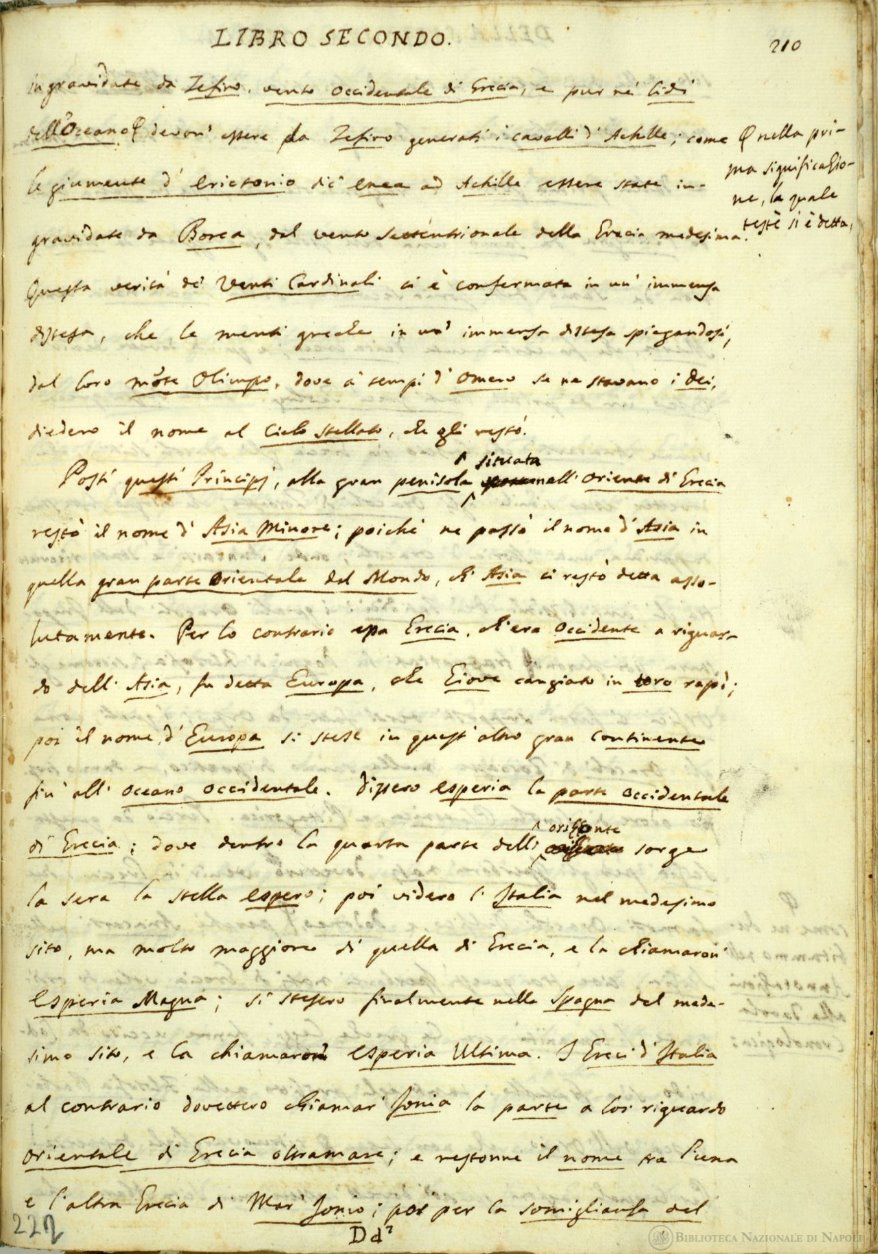 LIBRO SECONDO.
210
ingravidate da Zefiro, vento occidentale di Grecia, e pur ne' lidi
dell'Oceano devon' essere da Zefiro generati i cavalli d' Achille; come
nella pri-
ma significazio-
ne, la quale
testè si è detta,
le giumente d' Erictonio dic' Enea ad Achille essere state in-
gravidate da Borea, dal vento settentrionale della Grecia medesima.
Questa verità de' Venti Cardinali ci è confermata in un' immensa
distesa, che le menti greche in un' immensa distesa spiegandosi,
dal loro mōte Olimpo, dove a' tempi d' Omero se ne stavano i dei,
diedero il nome al Cielo stellato, che gli restò.
Posti questi Principj, alla gran penisola situata nell' Oriente di Grecia
restò il nome d' Asia Minore; poichè ne passò il nome d' Asia in
quella gran parte Orientale del Mondo, ch' Asia ci restò detta asso-
lutamente. Per lo contrario essa Grecia, ch'era Occidente a riguar-
do dell' Asia, fu detta Europa, che Giove cangiato in toro rapì;
poi il nome d' Europa si stese in quest' altro gran continente
fin' all' Oceano Occidentale. Dissero Esperia la parte Occidentale
di Grecia; dove dentro la quarta parte dell' orizonte sorge
la sera la stella Espero; poi videro l' Italia nel medesimo
sito, ma molto maggiore di quella di Grecia, e la chiamaron'
Esperia Magna; si stesero finalmente nella Spagna del mede-
simo sito, e la chiamaron' Esperia Ultima. I Greci d' Italia
al contrario dovettero chiamar' Jonia la parte a loi riguardo
orientale di Grecia oltramare; e restonne il nome tra l'una
e l'altra Grecia di Mar' Jonio; poi per la somiglianza del
222
Dd²
BIBLIOTECA NAZIONALE DI NAPOLI